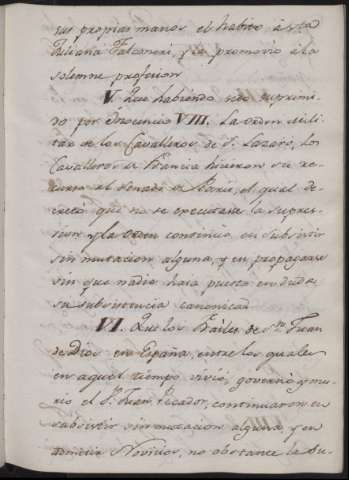 sus propias manos el habito á Sta
Juliana Falconeri, y la promovió á la
solemne profesion
V. Que habiendo sido suprimi-
do por Inocencio VIII. la orden Mili-
tar de los Cavalleros de S. Lazaro, los
Cavalleros de Francia hicieron su re-
curso al Senado de Paris, el qual de-
cretó que no se executase la supre-
sion y la orden continuó en subsistir
sin mutacion alguna, y en propagarse
sin que nadie haia puesto en duda
su subsistencia canonica
VI. Que los Frailes de Sn. Juan
de Dios en España, entre los quales
en aquel tiempo vivió, governó y mu-
rio el S. Juan Pecador, continuaron en
subsistir sin mutacion alguna, y en
admitir Novicios, no obstante la Su-